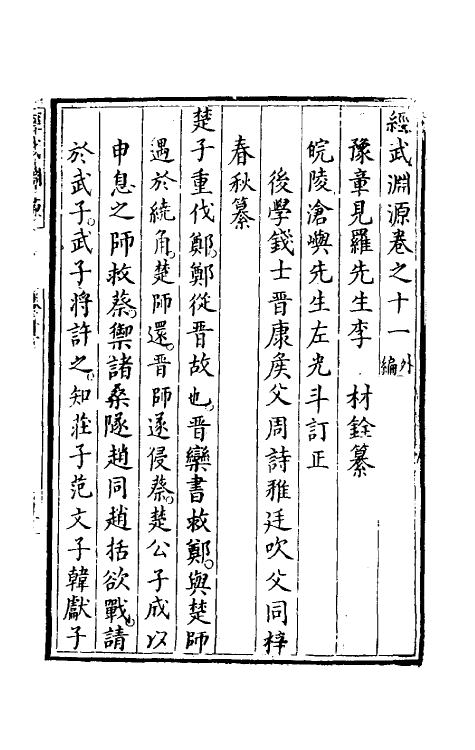 經武淵源卷之十一 外編
豫章見羅先生李 材銓纂
皖陵滄嶼先生左光斗訂正
後學錢士晋康矦父周詩雅廷吹父同梓
春秋纂
楚子重伐鄭。鄭從晋故也。晋欒書救鄭。與楚師
遇於繞角。楚師還。晋師遂侵蔡。楚公子成以
申息之師救蔡。禦諸桑隧趙同趙括欲戰。請
於武子。武子將許之。知莊子范文子韓獻子